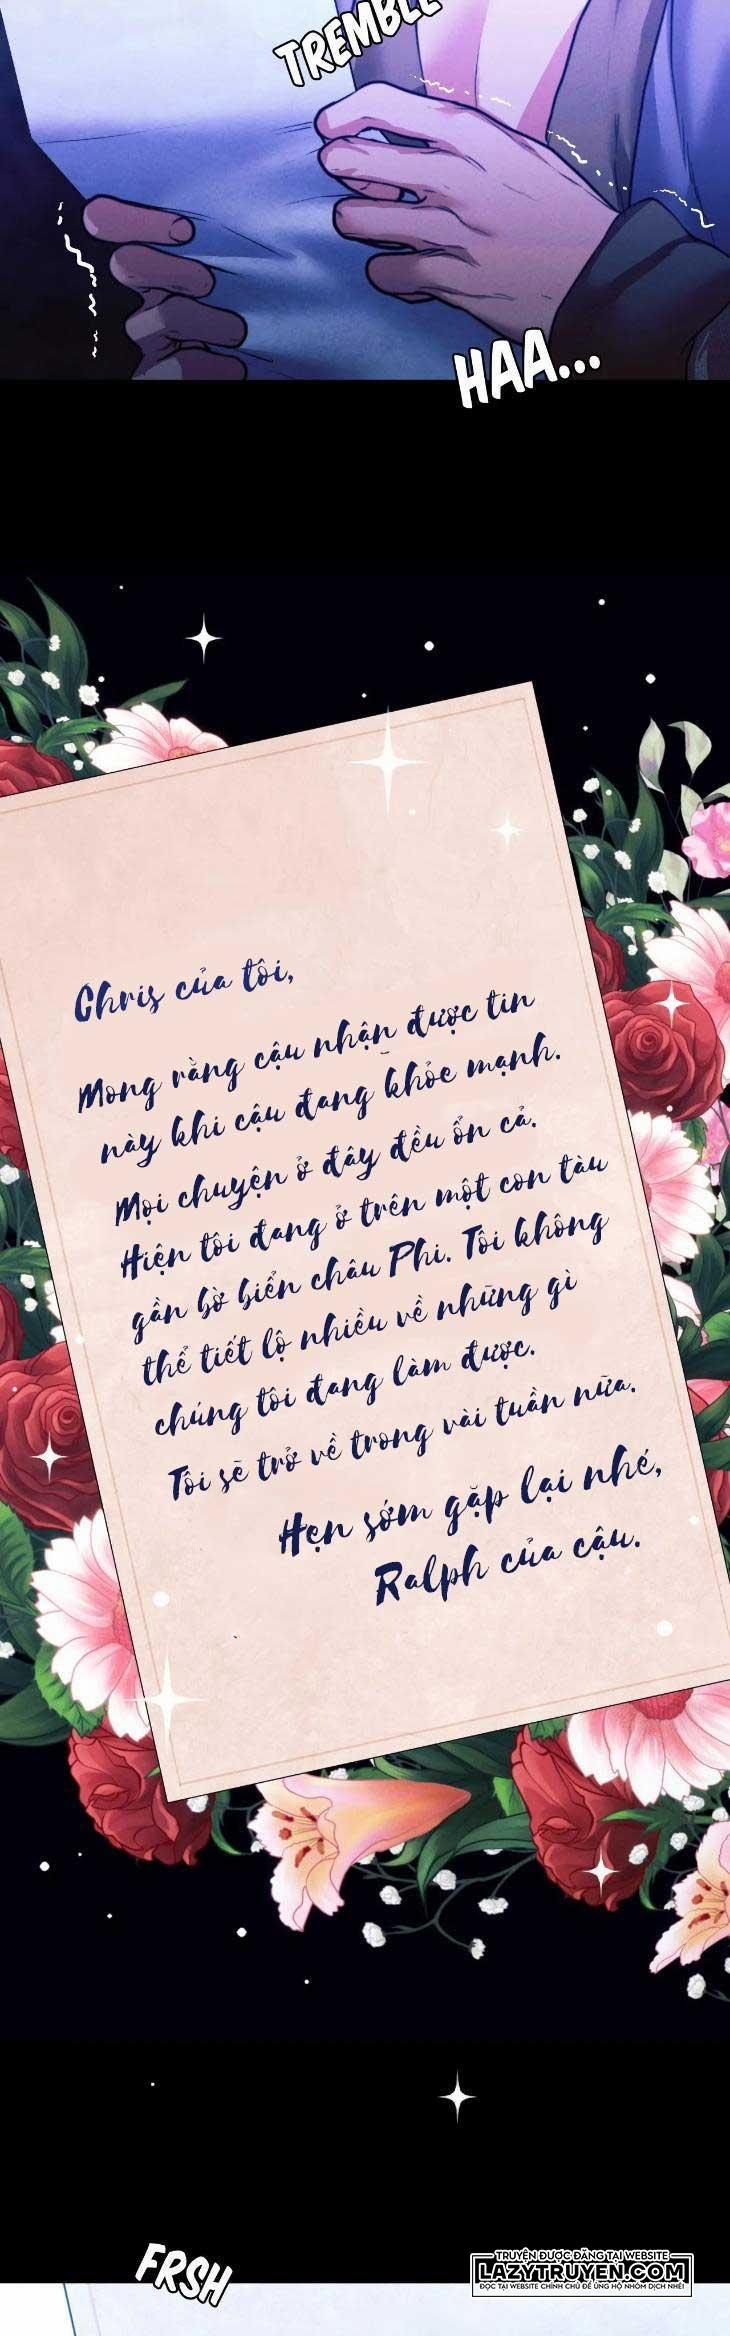 TREMBLE
HAA...
Chris của tôi,
Mong rằng cậu nhận được tin
này khi cậu đang khỏe mạnh.
Mọi chuyện ở đây đều ổn cả.
Hiện tôi đang ở trên một con tàu
gần bờ biển châu Phi. Tôi không
thể tiết lộ nhiều về những gì
chúng tôi đang làm được.
Tôi sẽ trở về trong vài tuần nữa.
Hẹn sớm gặp lại nhé,
Ralph của cậu.
FRSH
TRUYỆN ĐƯỢC ĐĂNG TẠI WEBSITE
LAZYTRUYEN.COM
ĐỌC TẠI WEBSITE CHÍNH CHỦ ĐỂ ỦNG HỘ NHÓM DỊCH NHÉ!